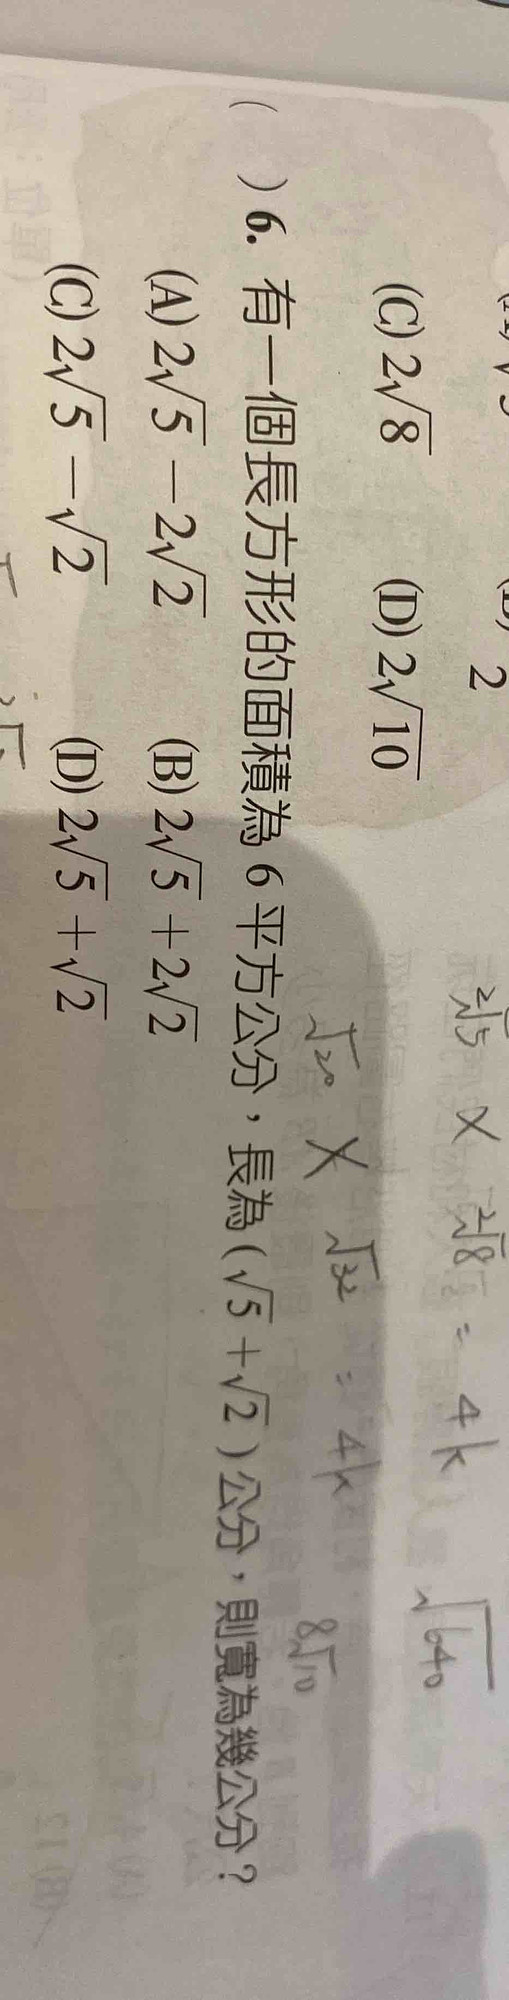 2
(C) 2√8 (D) 2√10
2√5 × 2√8 = 4k √640
√20 × √32 = 4k 8√10
( ) 6. 有一個長方形的面積為 6 平方公分，長為 (√5 +√2 ) 公分，則寬為幾公分？
(A) 2√5 －2√2 (B) 2√5 ＋2√2
(C) 2√5 －√2 (D) 2√5 ＋√2